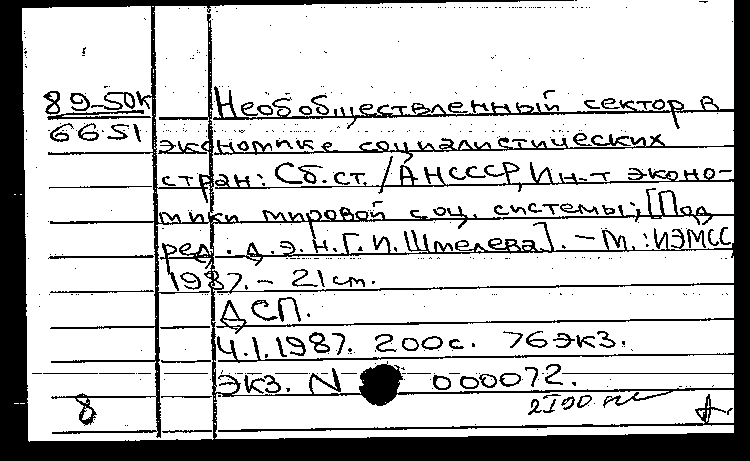 89-50к
6651
Необобществленный сектор в
экономике социалистических
стран: Сб.ст./АНСССР, Ин-т эконо-
мики мировой соц. системы; [Под
ред. д.э.н. Г.И. Шмелева]. - М.: ИЭМСС,
1987. - 21 см.
ДСП.
Ч.1. 1987. 200с. 76экз.
Экз. N 000072.
8